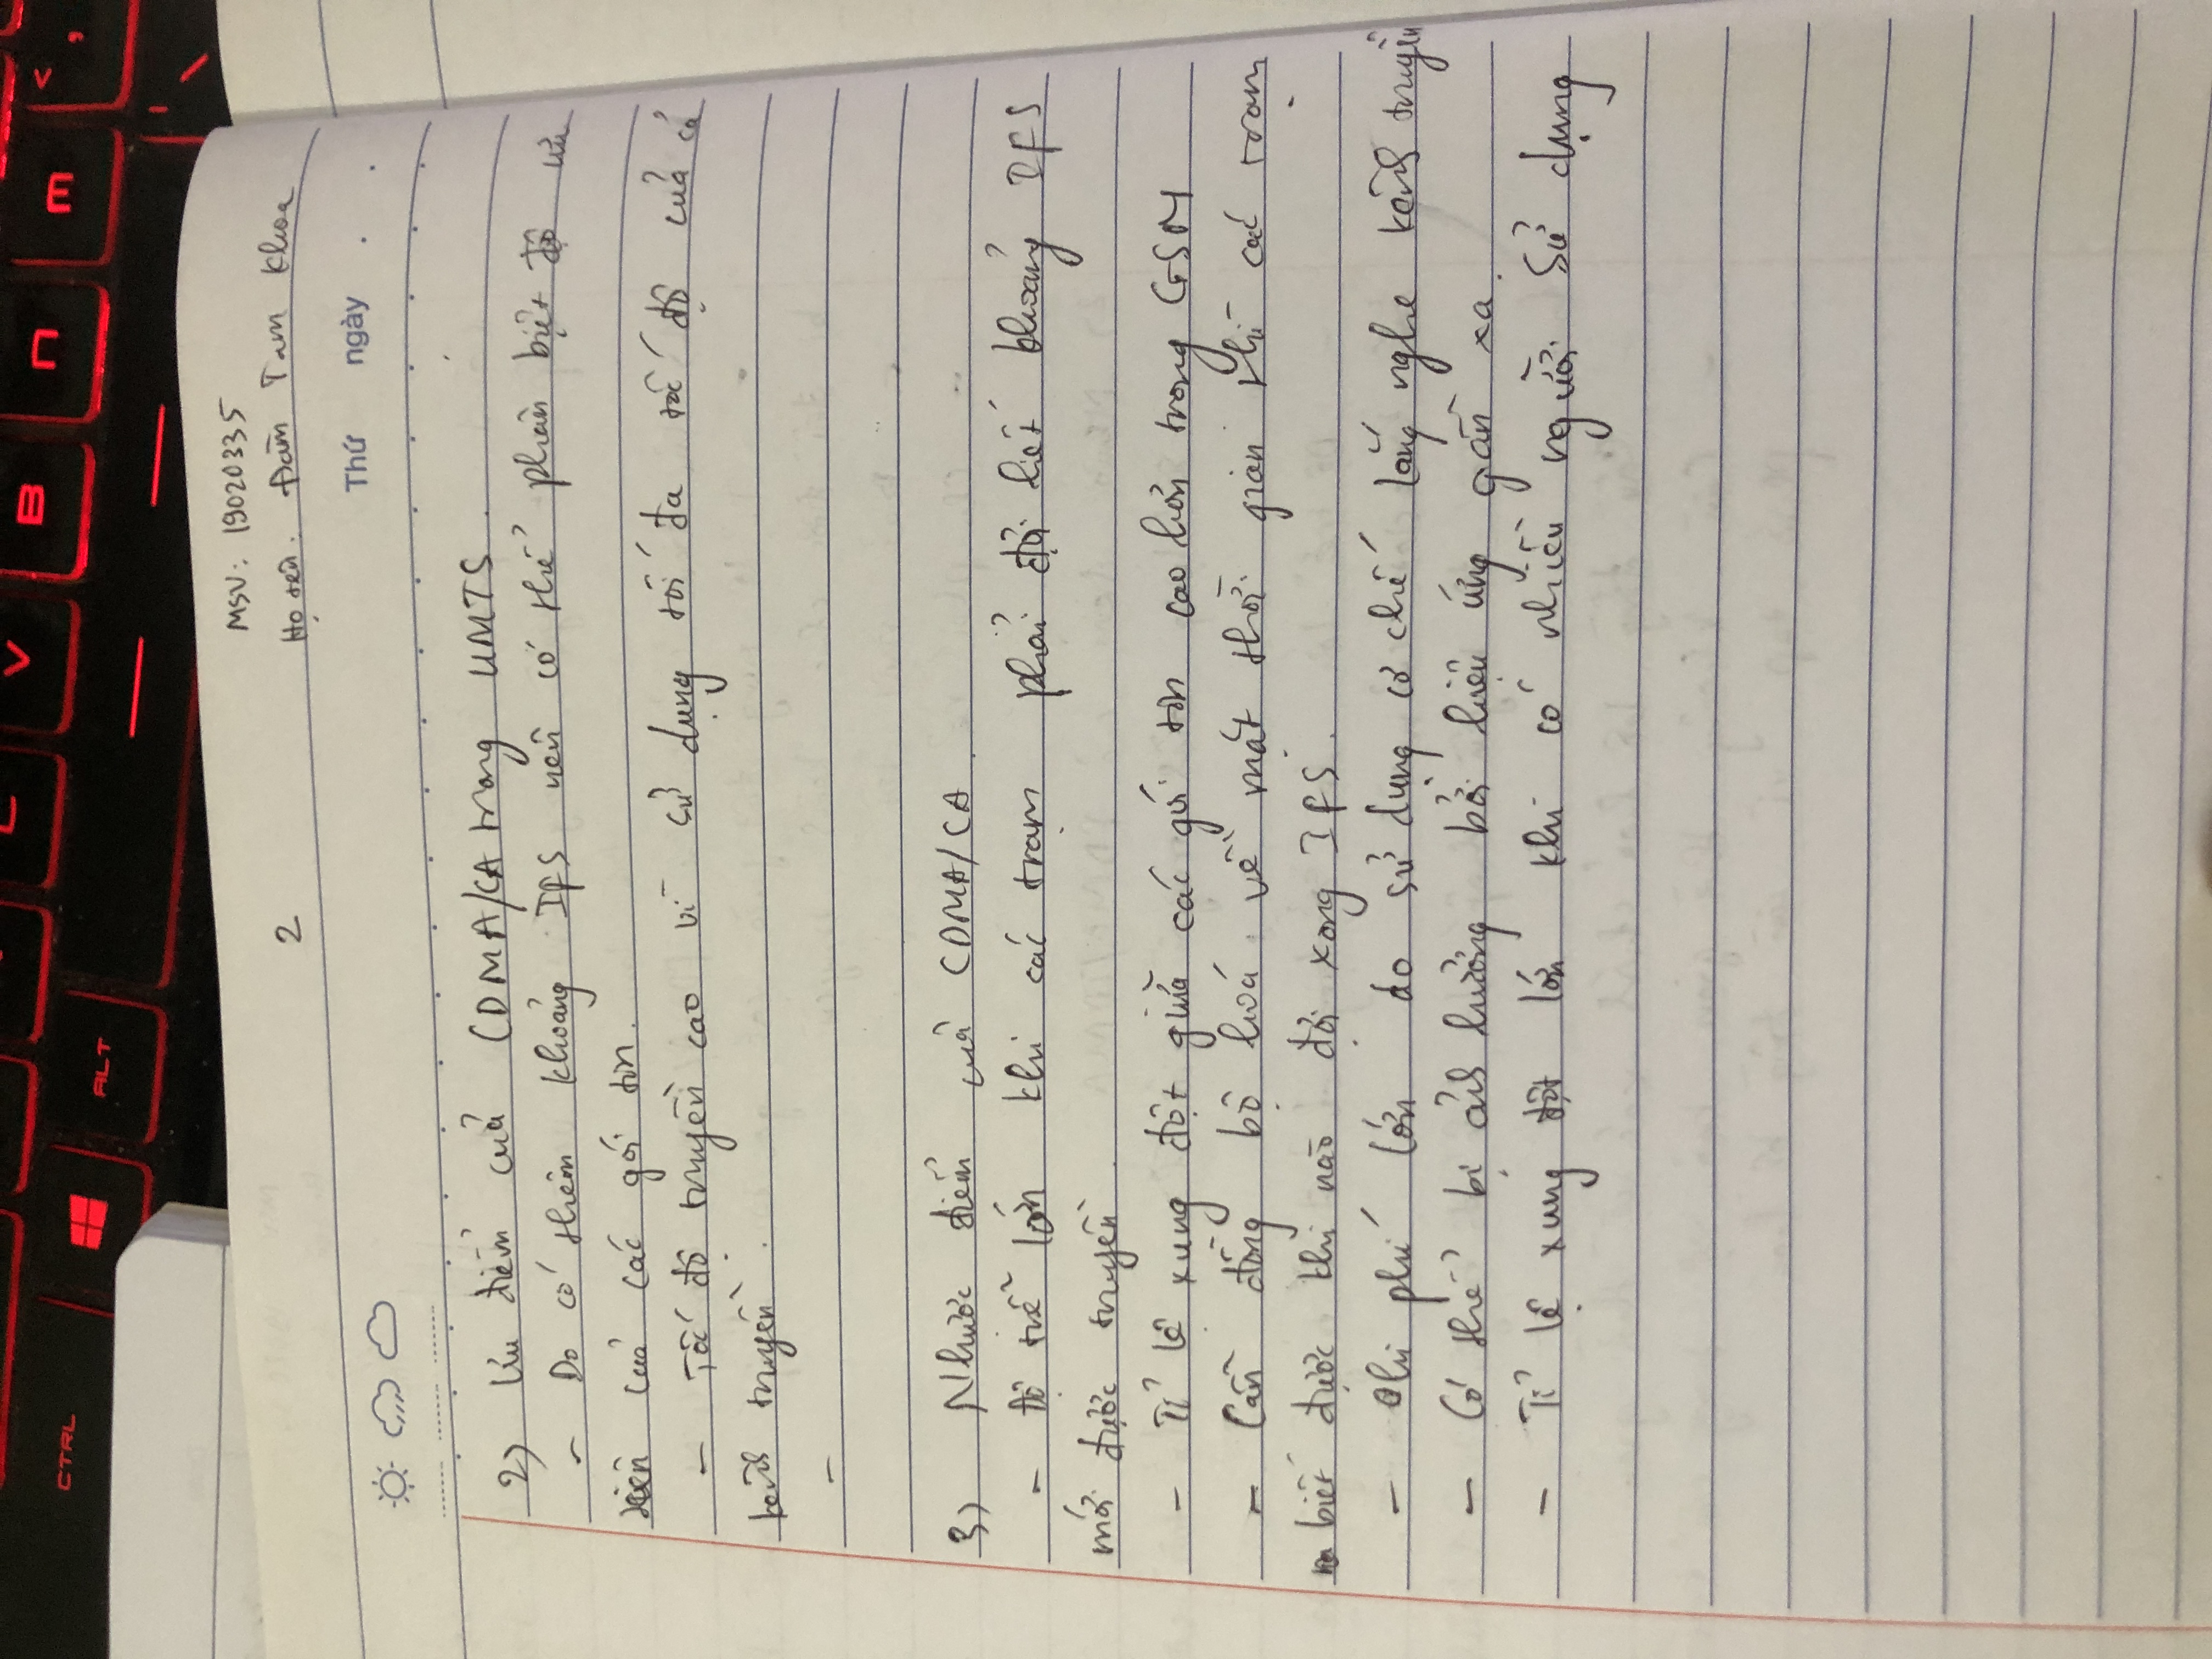 CTRL ALT L V B n m < ,
MSV: 19020335
2
Họ tên: Đàm Tam Khoa
Thứ ngày . .
2) Ưu điểm của CDMA/CA trong UMTS.
- Do có thêm khoảng IFS nên có thể phân biệt độ ưu
tiên của các gói tin.
- Tốc độ truyền cao vì sử dụng tối đa tốc độ của cả
kênh truyền.
-
3) Nhược điểm của CDMA/CA.
- Độ trễ lớn khi các trạm phải đợi hết khoảng IFS
mới được truyền.
- Tỉ lệ xung đột giữa các gói tin cao hơn trong GSM
- Cần đồng bộ hoá về mặt thời gian thì các trạm
biết được khi nào đợi xong IFS.
- Chi phí lớn do sử dụng cơ chế lắng nghe kênh truyền
- Có thể bị ảnh hưởng bởi hiệu ứng gần xa.
- Tỉ lệ xung đột lớn khi có nhiều người sử dụng